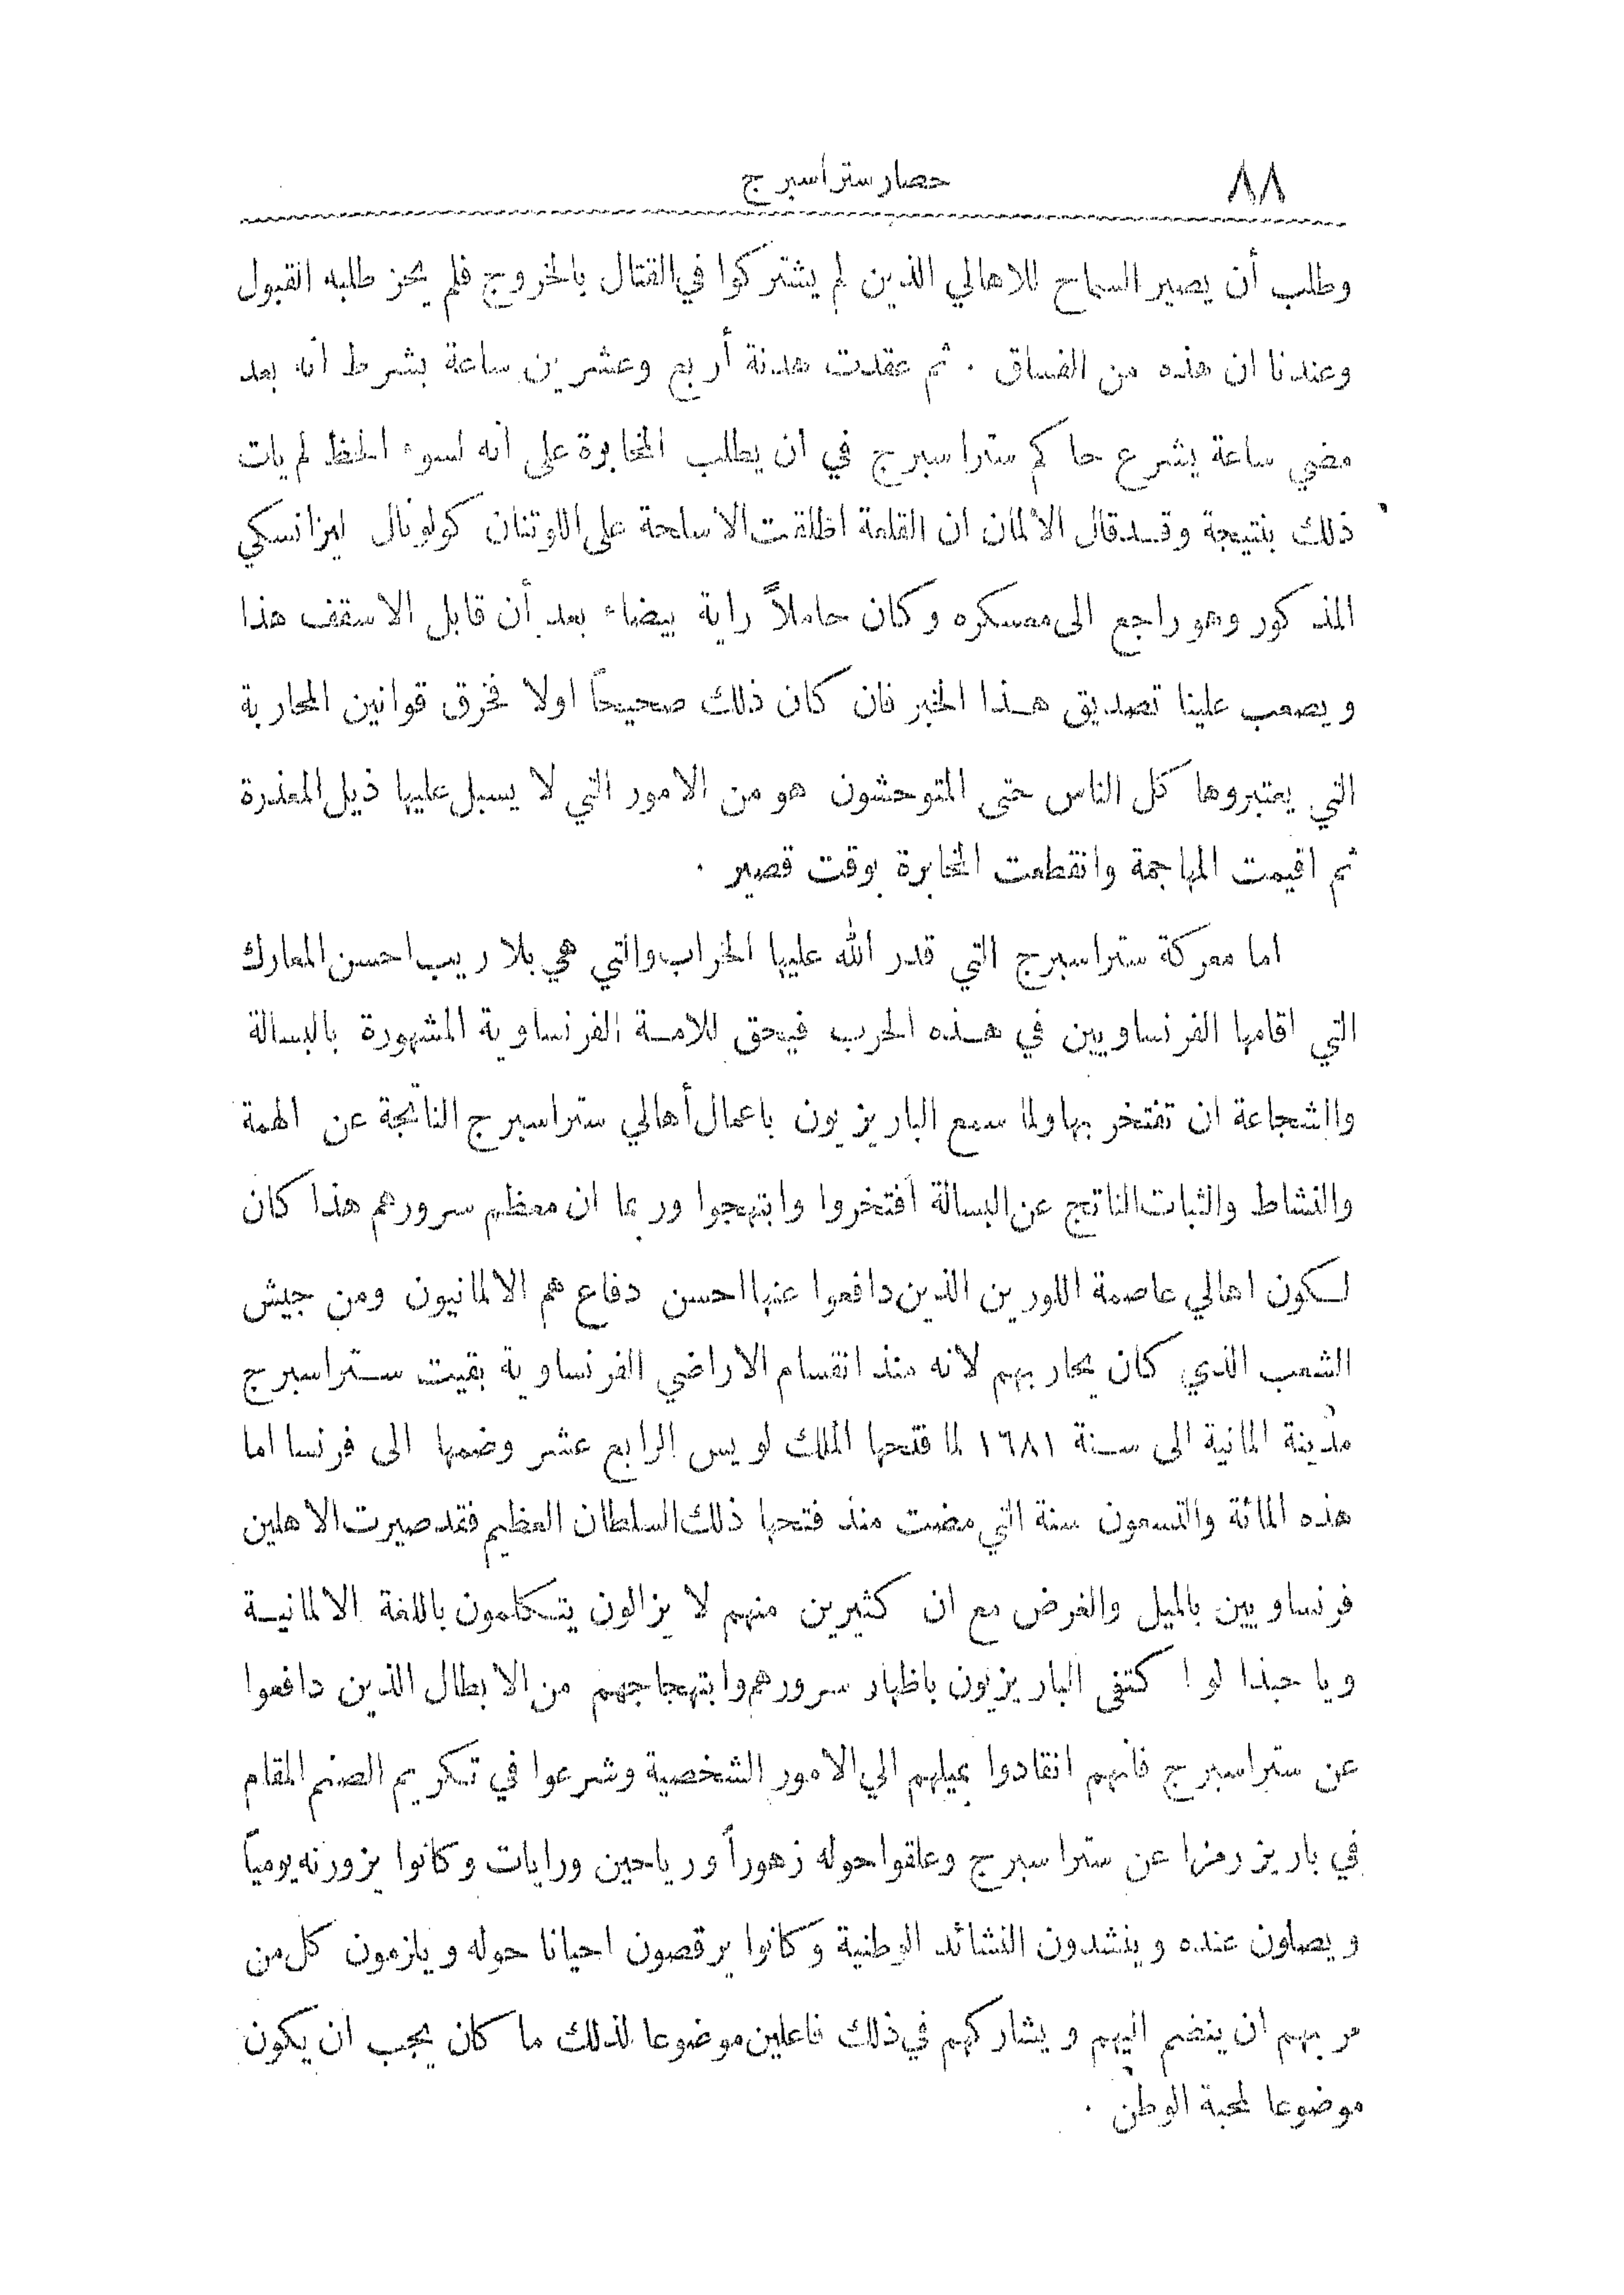 ٨٨
حصار ستراسبرج
وطلب أن يصير السماح للاهالي الذين لم يشتركوا في القتال بالخروج فلم يحز طلبه القبول
وعندنا ان هذه من الفساق . ثم عقدت هدنة أربع وعشرين ساعة بشرط انه بعد
مضي ساعة يشرع حاكم ستراسبرج في ان يطلب المخابرة على انه لسوء الحظ لم يات
ذلك بنتيجة وقد قال الالمان ان القلعة اطلقت الاسلحة على اللوتنان كولونال ايزانسكي
المذكور وهو راجع الى معسكره وكان حاملاً راية بيضاء بعد أن قابل الاسقف هذا
ويصعب علينا تصديق هذا الخبر فان كان ذلك صحيحاً اولا فخرق قوانين المحاربة
التي يعتبروها كل الناس حتى المتوحشون هو من الامور التي لا يسبل عليها ذيل المعذرة
ثم اقيمت المهاجمة وانقطعت المخابرة بوقت قصير .
اما معركة ستراسبرج التي قدر الله عليها الخراب والتي هي بلا ريب احسن المعارك
التي اقامها الفرنساويين في هذه الحرب فيحق للامة الفرنساوية المشهورة بالبسالة
والشجاعة ان تفتخر بها ولما سمع الباريزيون باعمال أهالي ستراسبرج الناتجة عن الهمة
والنشاط والثبات الناتج عن البسالة افتخروا وابتهجوا وربما ان معظم سرورهم هذا كان
لكون اهالي عاصمة اللورين الذين دافعوا عنها احسن دفاع هم الالمانيون ومن جيش
الشعب الذي كان يحاربهم لانه منذ انقسام الاراضي الفرنساوية بقيت ستراسبرج
مدينة المانية الى سنة ١٦٨١ لما فتحها الملك لويس الرابع عشر وضمها الى فرنسا اما
هذه المائة والتسعون سنة التي مضت منذ فتحها ذلك السلطان العظيم فقد صيرت الاهلين
فرنساويين بالميل والغرض مع ان كثيرين منهم لا يزالون يتكلمون باللغة الالمانية
ويا حبذا لو اكتفى الباريزيون باظهار سرورهم وابتهجاجهم من الابطال الذين دافعوا
عن ستراسبرج فانهم انقادوا بميلهم الي الامور الشخصية وشرعوا في تكريم الصنم المقام
في باريز رمزا عن ستراسبرج وعلقوا حوله زهوراً ورياحين ورايات وكانوا يزورنه يومياً
ويصلون عنده وينشدون النشائد الوطنية وكانوا يرقصون احيانا حوله ويلزمون كل من
مر بهم ان ينضم اليهم ويشاركهم في ذلك فاعلين موضوعا لذلك ما كان يجب ان يكون
موضوعا لمحبة الوطن .